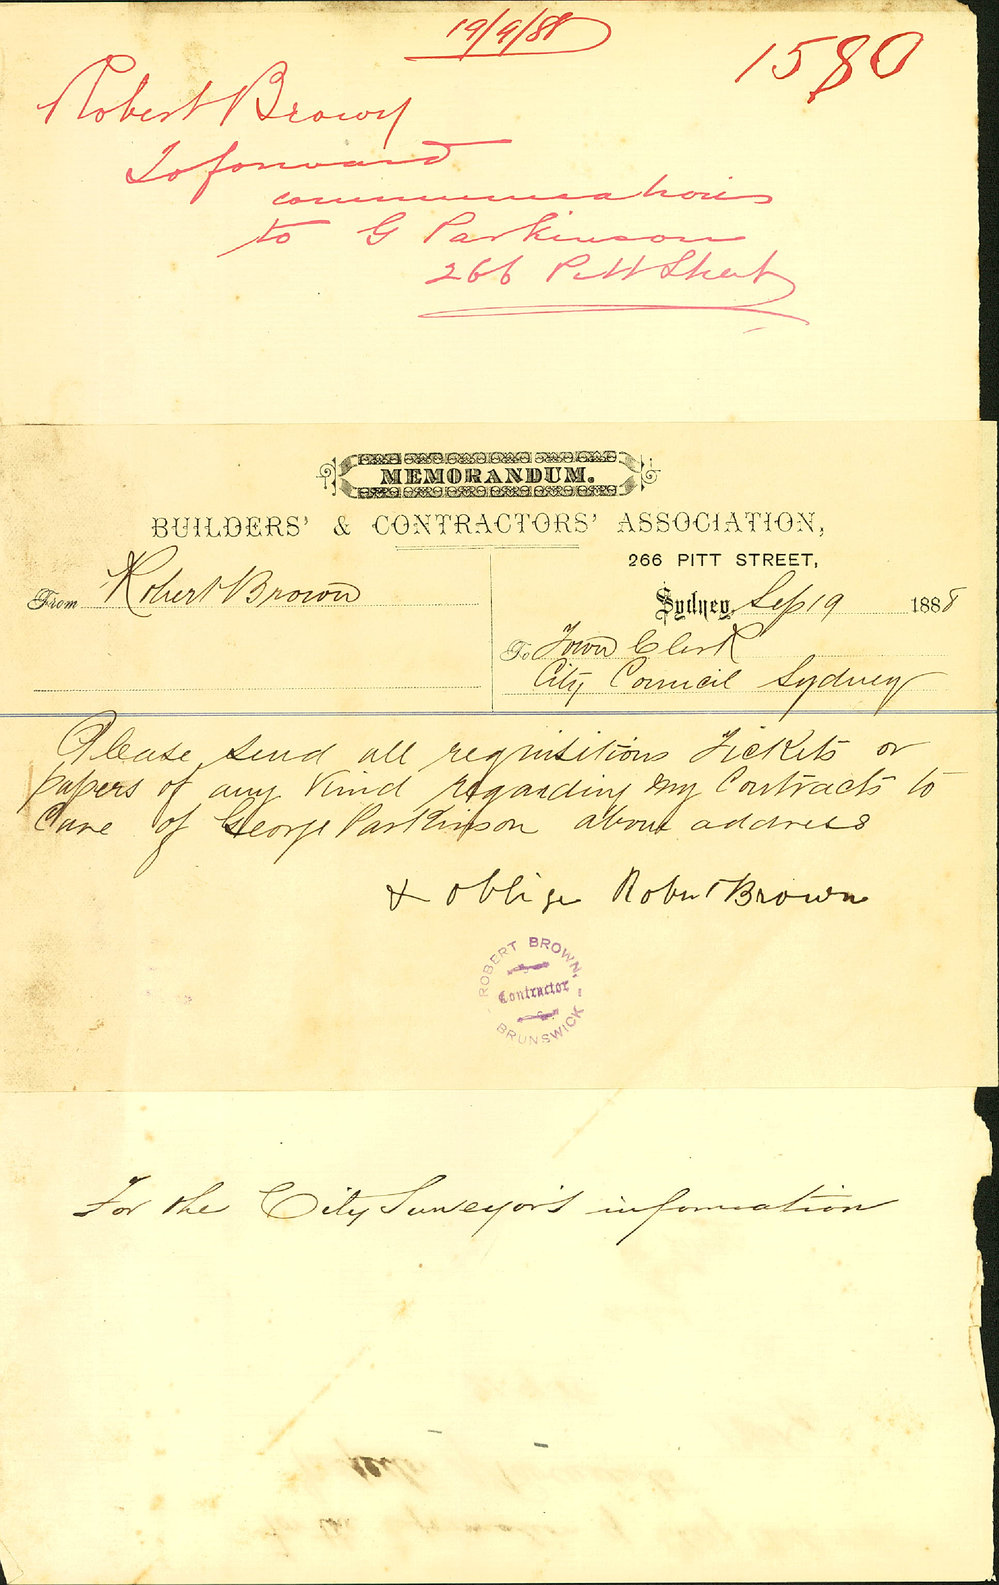 19/9/88
1580
Robert Brown
To forward
communications
to G Parkinson
266 Pitt Street
MEMORANDUM.
BUILDERS' & CONTRACTORS' ASSOCIATION,
266 PITT STREET,
From Robert Brown
Sydney, Sep 19 1888
To Town Clerk
City Council Sydney
Please send all requisitions Tickets or
papers of any Kind regarding my Contracts to
Care of George Parkinson above address
& oblige Robert Brown
ROBERT BROWN,
Contractor
BRUNSWICK
For the City Surveyor's information